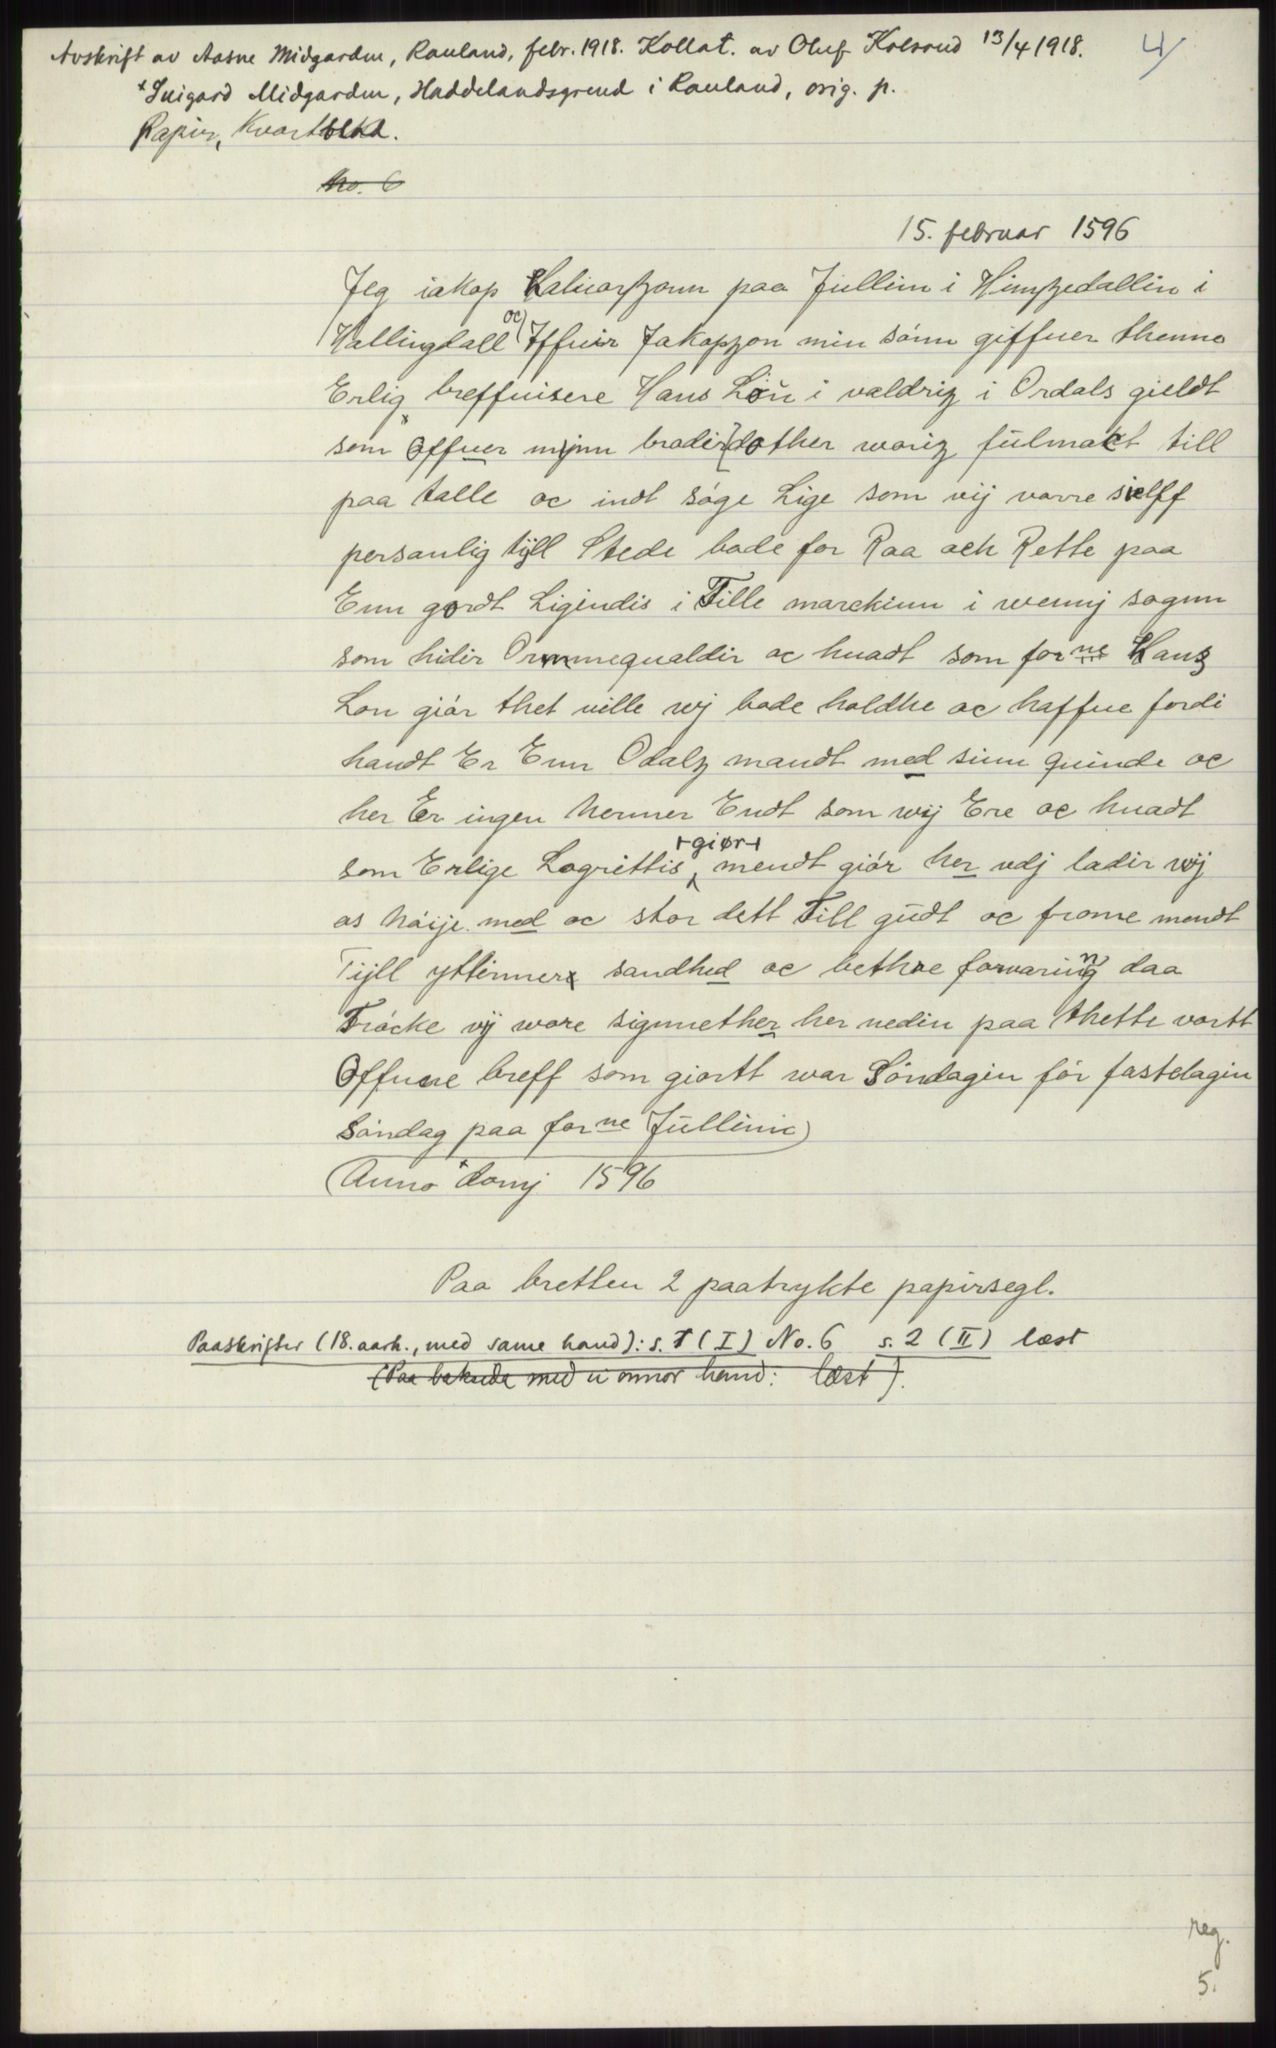 Avskrift av Aasne Midgarden, Rauland, febr. 1918. Kollat. av Oluf Kolsrud 13/4 1918.
4/
Midgarden, Haddelandsgrend i Rauland, orig. p.
Papir, Kvartblad.
No. 6
15. februar 1596
Jeg iakop Haluorszonn paa Jullinn i Himszedallin i
Hallingdall oc Iffuir Jakopzon min sónn giffuer thenno
Erlig breffuisere Hans Lon i valdriz i Ordals gieldt
som Offuer minn brodirdother woriz fulmact till
paa talle oc indt sóge Lige som vij varre sielff
personlig tijll Stede bade for Raa och Rette paa
Enn gordt Ligindis i Tille marckinn i wennj sognn
som hidir Ormmequaldir oc huadt som forne Hans
Lon giór thet ville wj bode holdhe oc haffue fordi
handt Er Enn Odalz mandt med sinn quinde oc
her Er ingen nermer Endt som wij Ere oc huadt
som Erlige Logrittis +giør+ mendt giór her vdj ladir wij
os nóije med oc stor dett Till gudt oc frome mendt
Tijll yttinnere sandhed oc bethre forvaring daa
Trócke vij wore signnether her nedin paa thette vortt
Offune breff som giortt war Sóndagin fór fastelagin
sóndag paa forne Jullinn
Anno domj 1596
Paa bretten 2 paatrykte papirsegl.
Paaskrifter (18. aarh., med same hand): s. 1 (I) No. 6 s. 2 (II) læst
(Paa baksida med ei onnor hand: læst).
reg.
5.